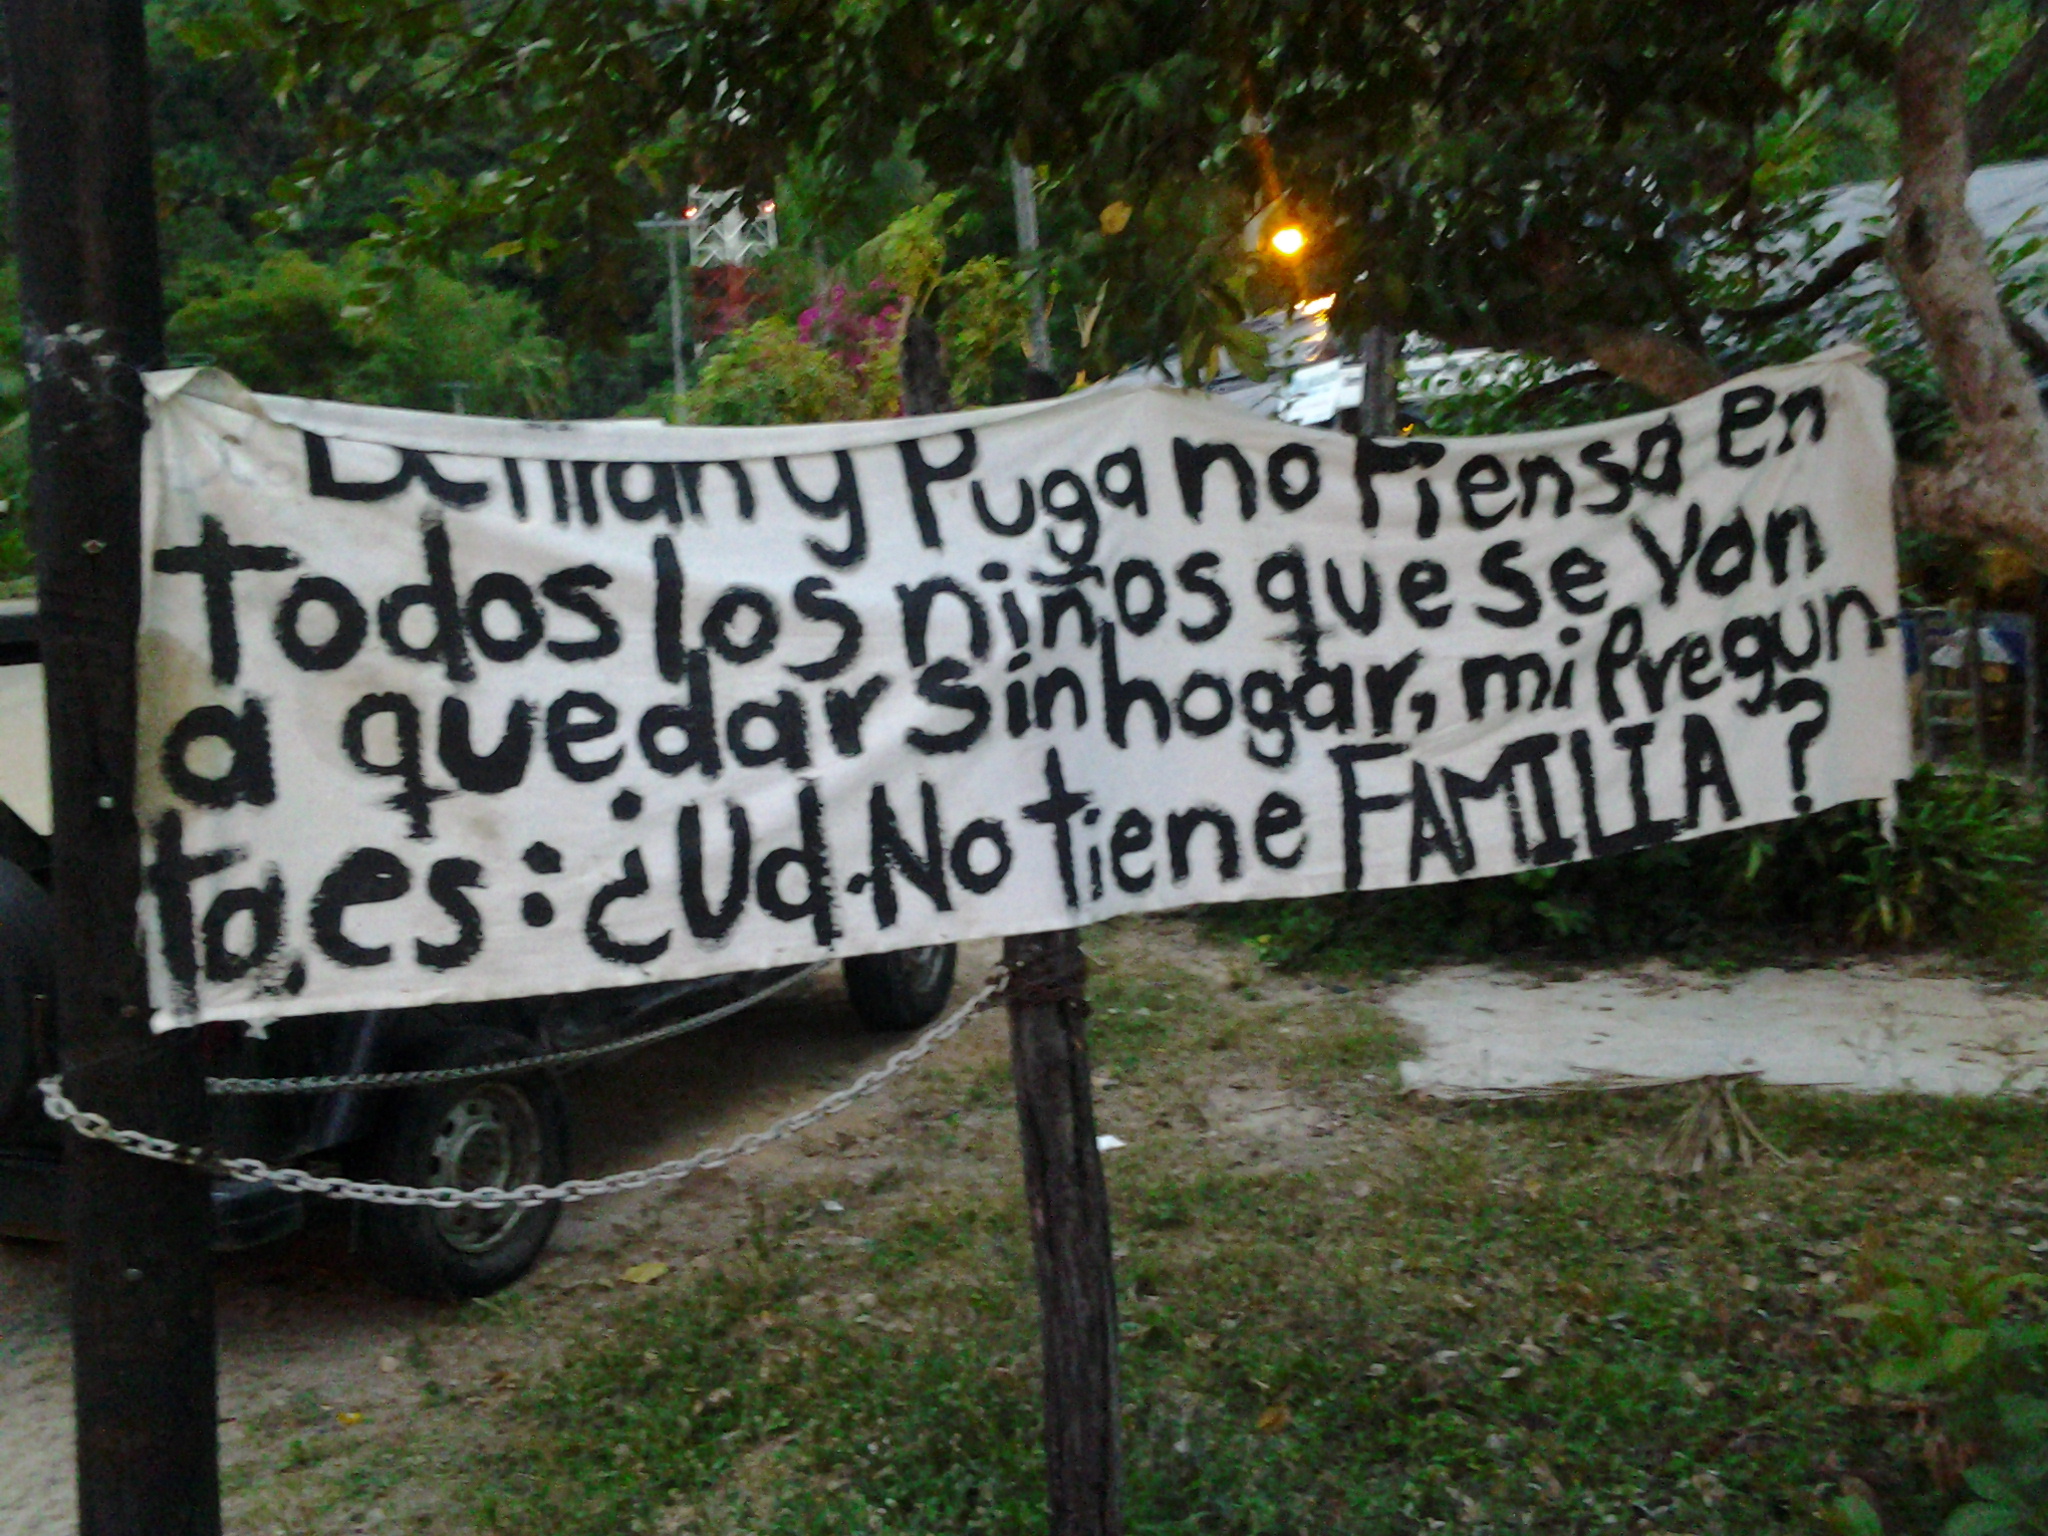 y Puga no Piensa en
todos los niños que se van
a quedar sin hogar, mi Pregun-
ta, es: ¿Ud. No tiene FAMILIA?